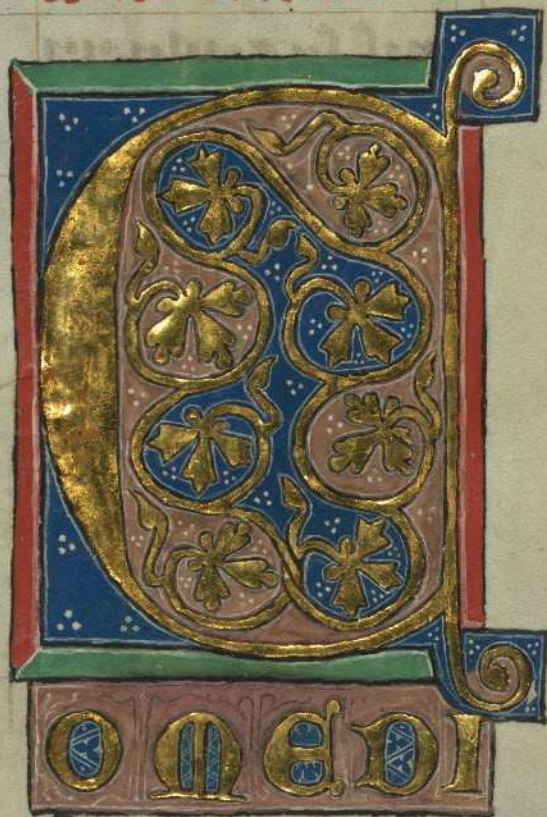 C
OMEDI